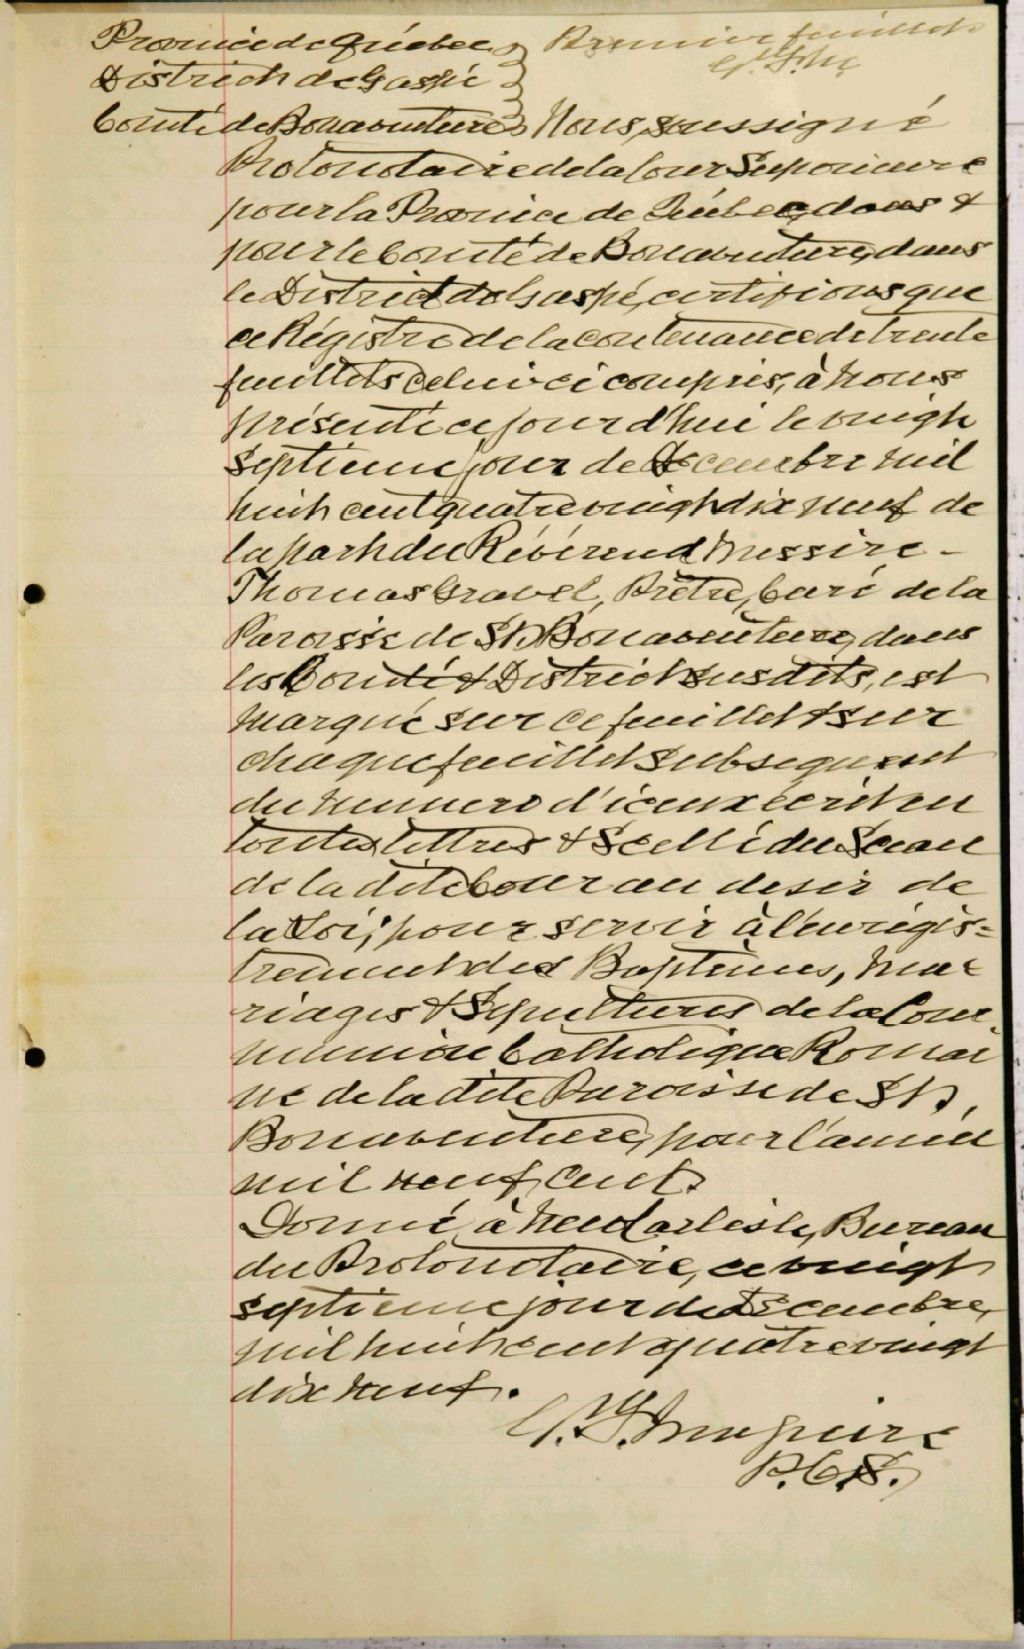 Province de Québec } Premier feuillet
District de Gaspé
Comté de Bonaventure } Nous, soussigné
Protonotaire de la Cour Supérieure
pour la Province de Québec, dans &
pour le Comté de Bonaventure, dans
le District de Gaspé, certifions que
ce Régistre de la contenance de trente
feuillets celui-ci compris, à nous
présenté ce jourd'hui le vingt
septieme jour de Decembre mil
huit cent quatre vingt dix neuf de
la part du Révérend Messire -
Thomas Gravel, Prêtre, Curé de la
Paroisse de St. Bonaventure, dans
les Comté & District susdits, est
marqué sur ce feuillet & sur
chaque feuillet subsequent
du numero d'iceux écrit en
toutes lettres & Scellé du Sceau
de la dite Cour au desir de
la Loi, pour servir à l'enrégis=
trement des Baptêmes, Ma-
riages & Sépultures de la Com-
munion Catholique Romai
ne de la dite Paroisse de St.
Bonaventure, pour l'année
mil neuf cent.
Donné à New Carlisle, Bureau
du Protonotaire, ce vingt
septieme jour de Decembre,
mil huit cent quatre vingt
dix neuf.
Maguire
P.C.S.